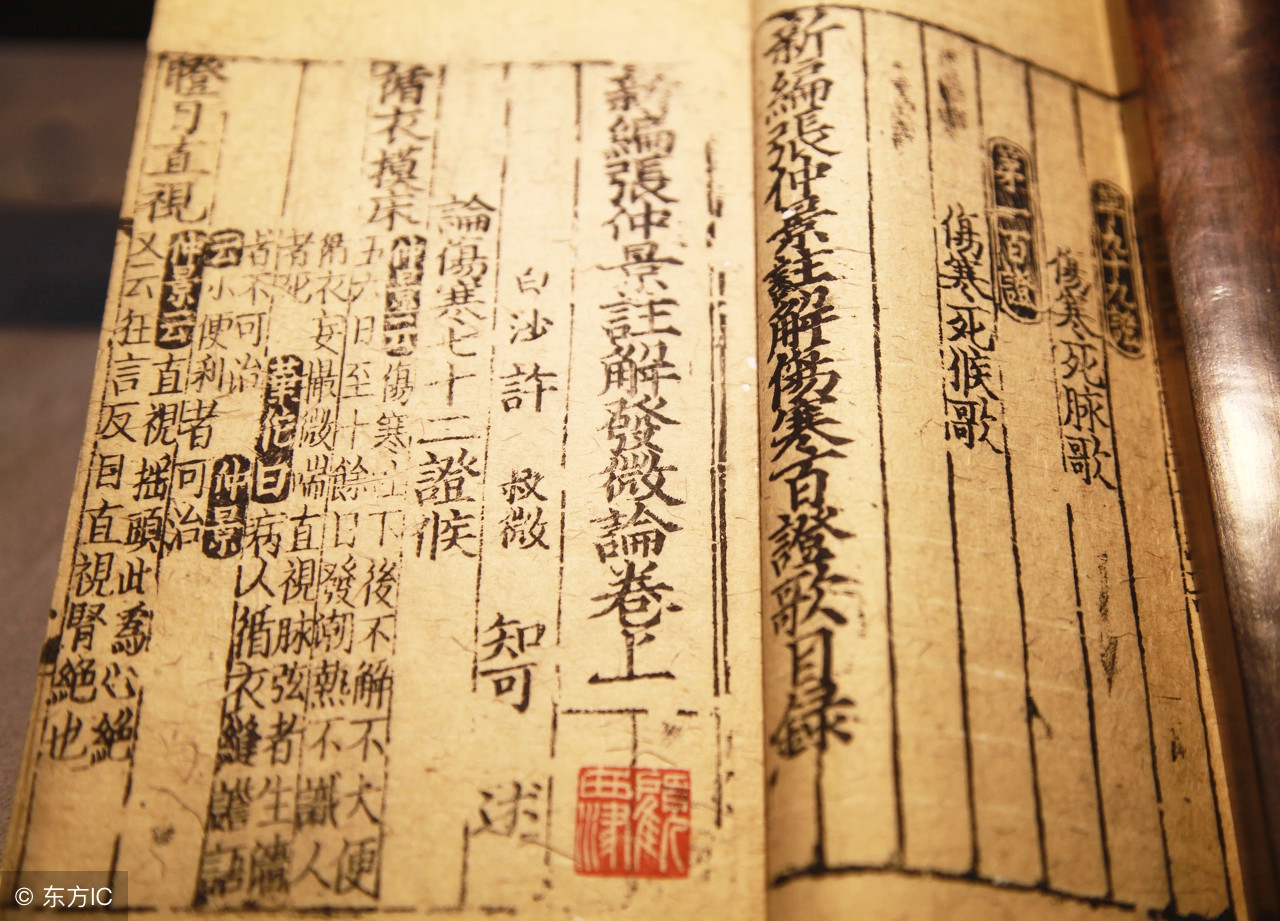 第九十九證
傷寒死脉歌
第一百證
傷寒死候歌
新編張仲景註解傷寒百證歌目錄
新編張仲景註解發微論卷上
白沙許 叔微 知可 述
論傷寒七十二證候
循衣摸床
仲景云傷寒吐下後不解不大便
五六日至十餘日發潮熱不識人
循衣妄撮微喘直視脉弦者生濇
者死華佗曰病人循衣縫譫語
者不可治仲景
云小便利者可治
瞪目直視
仲景云直視揺頭此爲心絶
又云狂言反目直視腎絶也
© 东方IC